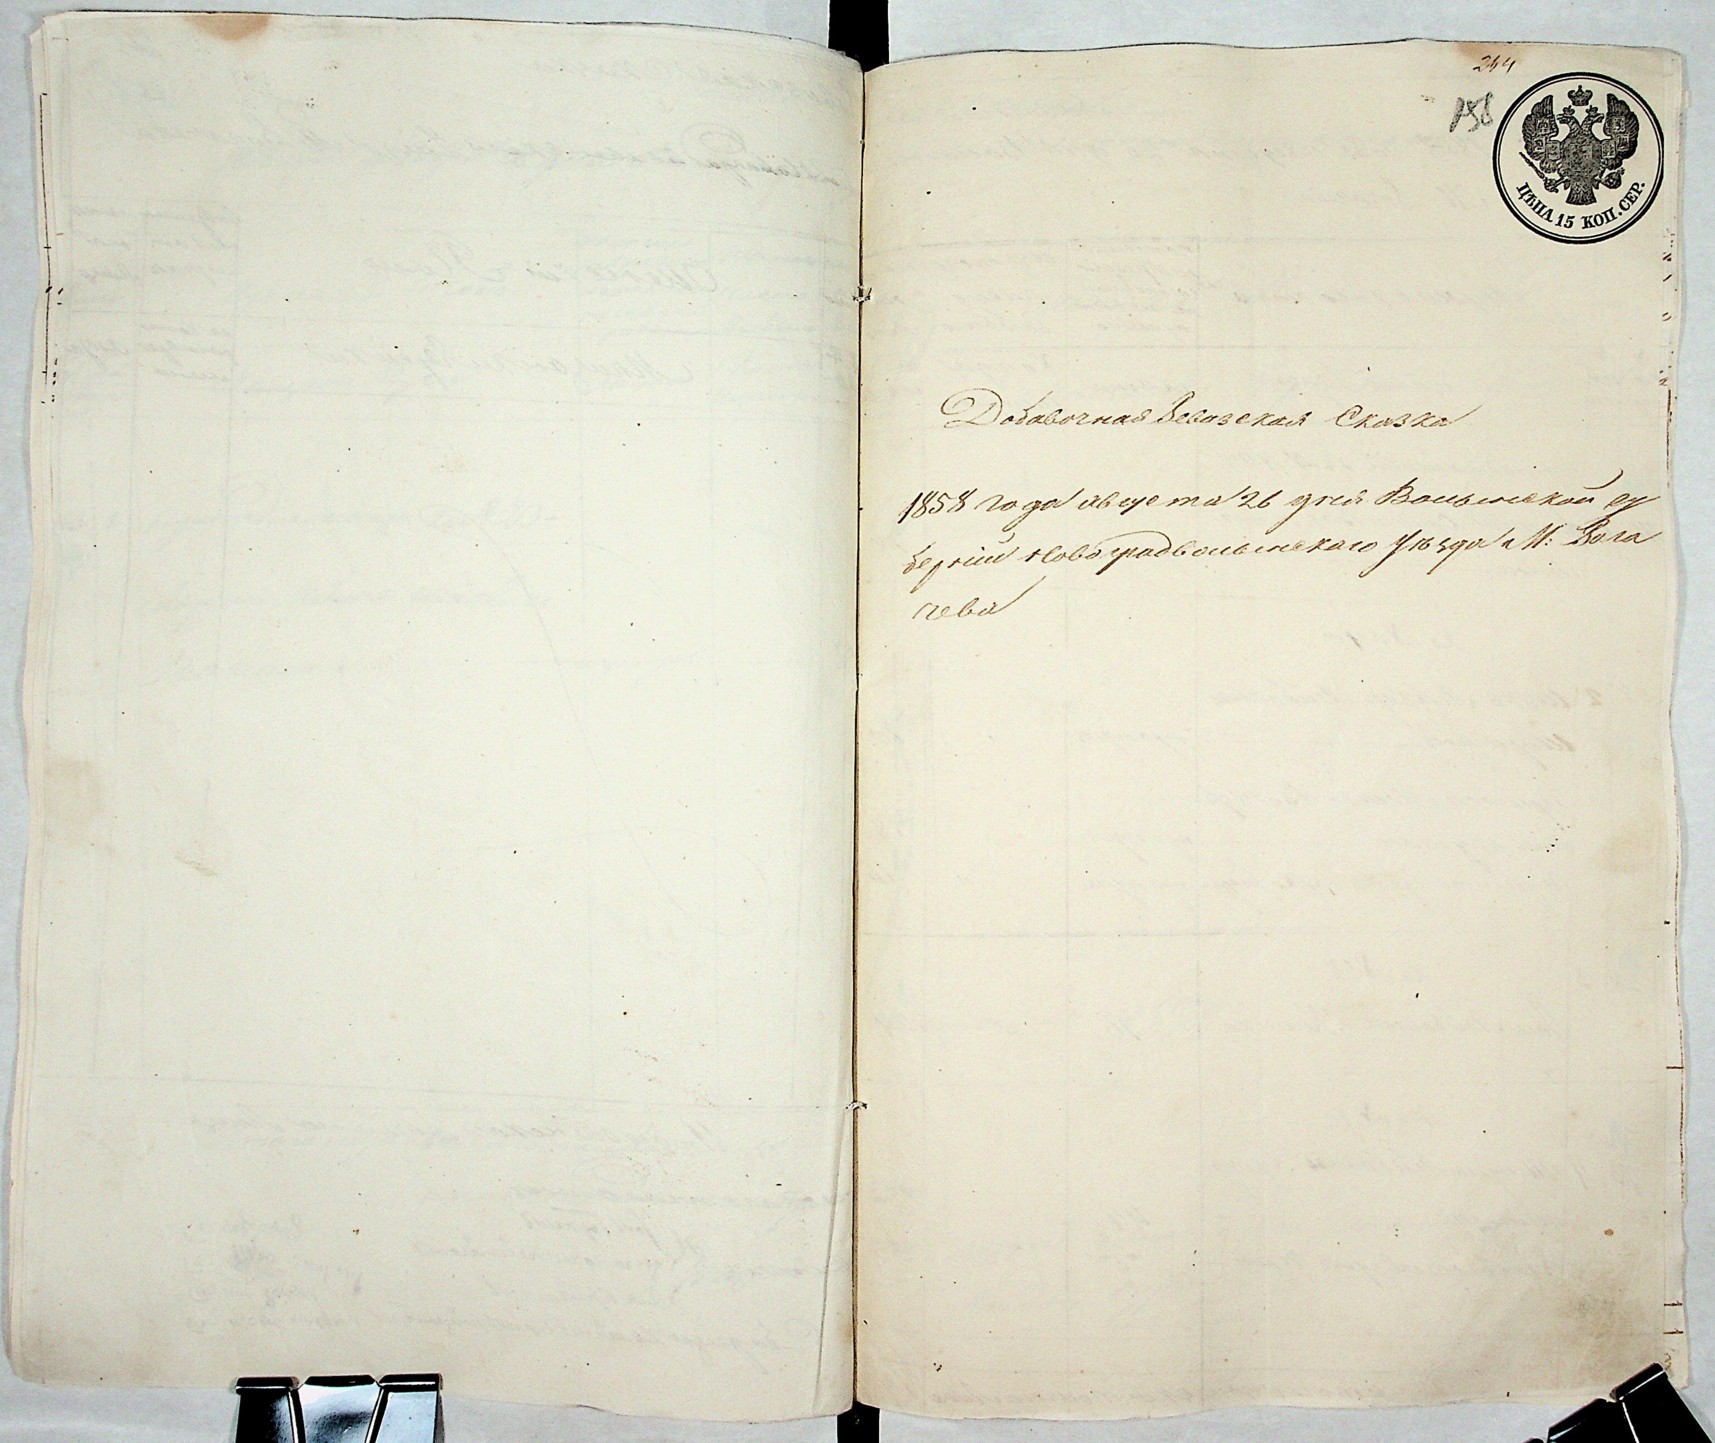 244
158
ЦѢНА 15 КОП. СЕР.
Добавочная Ревизская Сказка
1858 года августа 26 дня Волынской гу
берніи Новоградволынскаго Уѣзда М: Рога
чева